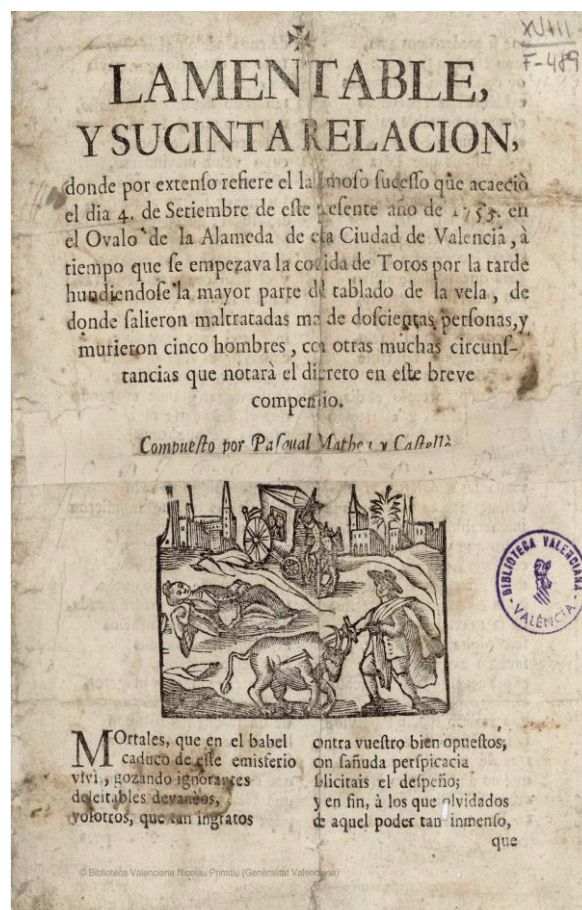 XVIII
F-489
LAMENTABLE,
Y SUCINTA RELACION,
donde por extenſo refiere el laſtimoſo ſuceſſo que acaeciò
el dia 4. de Setiembre de eſte preſente año de 1753. en
el Ovalo de la Alameda de eſta Ciudad de Valencia, à
tiempo que ſe empezava la corrida de Toros por la tarde
hundiendoſe la mayor parte del tablado de la vela, de
donde ſalieron maltratadas mas de doſcientas perſonas, y
murieron cinco hombres, con otras muchas circunſ-
tancias que notarà el diſcreto en eſte breve
compendio.
Compueſto por Paſqual Matheu y Caſtellà
BIBLIOTECA VALENCIANA
VALÈNCIA
MOrtales, que en el babel
caduco de eſte emisferio
vivis, gozando ignorantes
deleitables devaneos,
voſotros, que tan ingratos
contra vueſtro bien opueſtos,
con ſañuda perſpicacia
ſolicitais el deſpeño;
y en fin, à los que olvidados
de aquel poder tan inmenſo,
que
© Biblioteca Valenciana Nicolau Primitiu (Generalitat Valenciana)